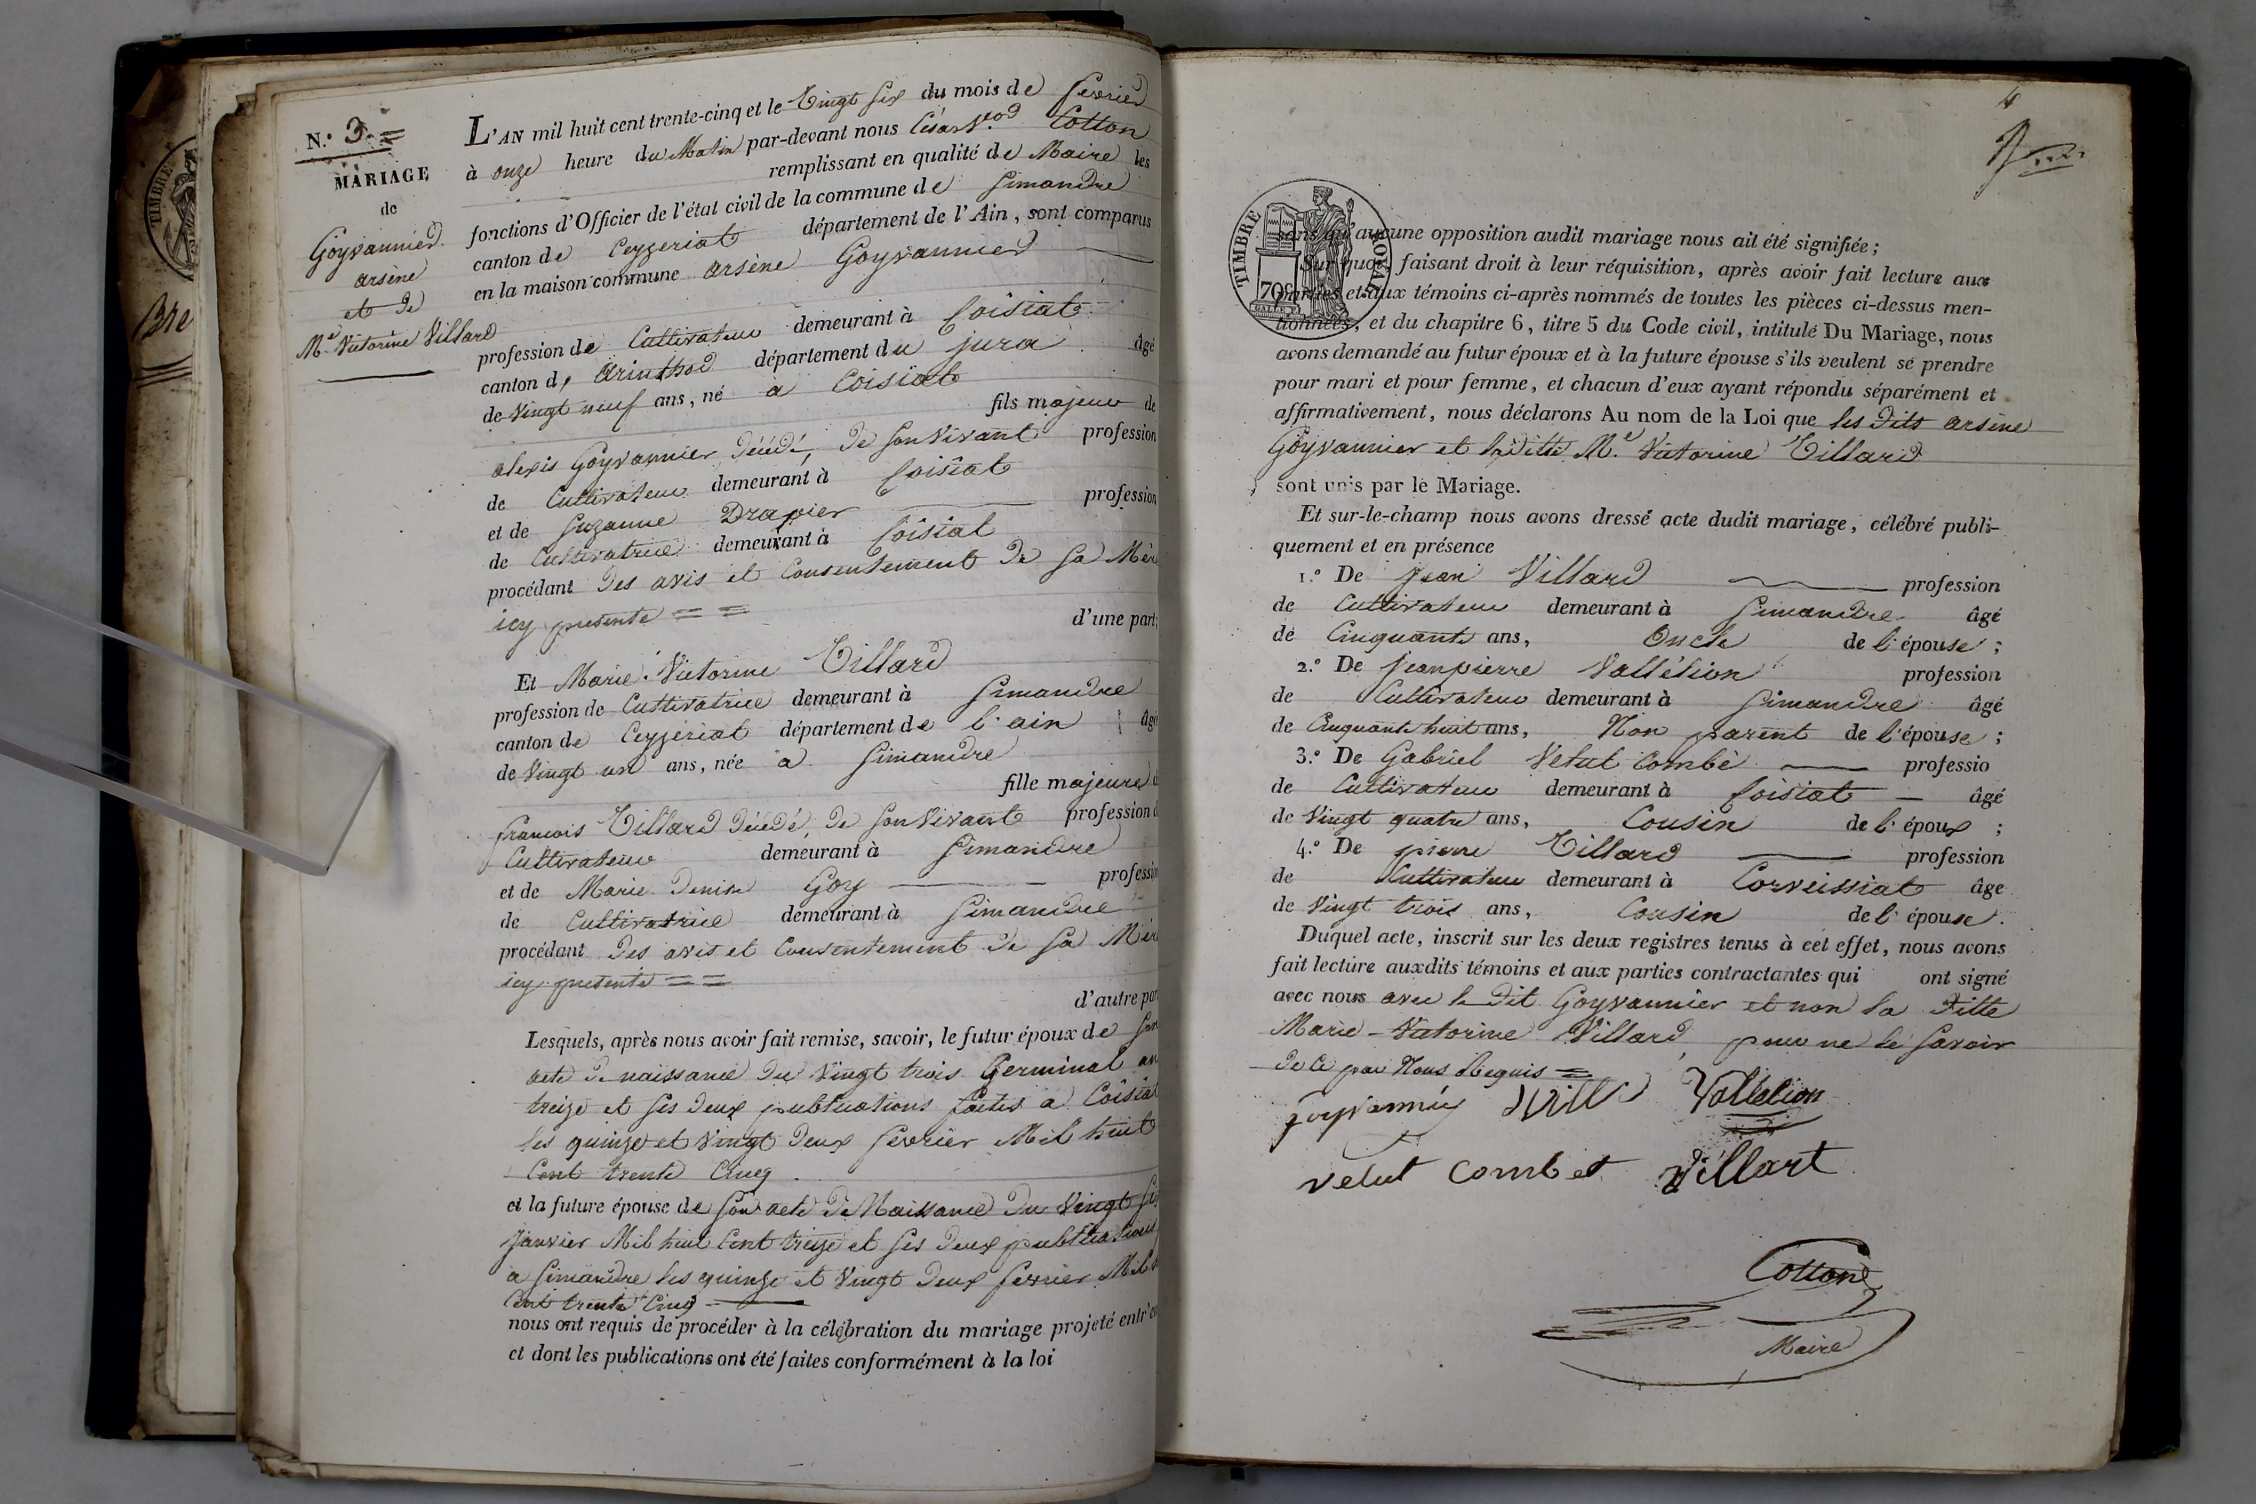 N.° 3.
MARIAGE
de
Goyvannier
arsène
et de
M.e Victorine Villard
L'AN mil huit cent trente-cinq et le Vingt six du mois de fevrier
à onze heure du Matin par-devant nous César Cotton
remplissant en qualité de Maire les
fonctions d'Officier de l'état civil de la commune de Simandre
canton de Ceyzeriat département de l'Ain, sont comparus
en la maison commune arsène Goyvannier
profession de Cultivateur demeurant à Coisiat
canton d, arinthod département du jura âgé
de Vingt neuf ans, né à Coisiat
fils majeur de
alexis Goyvannier, décédé, de son Vivant profession
de Cultivateur demeurant à Coisiat
et de Suzanne Drapier profession
de Cultivatrice demeurant à Coisiat
procédant des avis et Consentement de sa Mère
icy presente = =
d'une part;
Et Marie Victorine Villard
profession de Cultivatrice demeurant à Simandre
canton de Ceyzeriat département de l'ain âgé
de Vingt un ans, née à Simandre
fille majeure
francois Villard décédé, de son Vivant profession d
Cultivateur demeurant à Simandre
et de Marie denise Goy professio
de Cultivatrice demeurant à Simandre
procédant des avis et Consentement de sa Mère
icy presente = =
d'autre par
Lesquels, après nous avoir fait remise, savoir, le futur époux de son
acte de naissance du Vingt trois Germinal an
treize et ses deux publications faites a Coisiat
les quinze et Vingt deux fevrier Mil huit
Cent trente Cinq
et la future épouse de son acte de Naissance du Vingt six
janvier Mil huit Cent treize et ses deux publications
a Simandre les quinze et Vingt deux fevrier Mil
Cent trente Cinq
nous ont requis de procéder à la célébration du mariage projeté entr'eu
et dont les publications ont été faites conformément à la loi
TIMBRE
Bre
4
TIMBRE ROYAL
70c
sans qu'aucune opposition audit mariage nous ait été signifiée;
Sur quoi, faisant droit à leur réquisition, après avoir fait lecture aux
parties et aux témoins ci-après nommés de toutes les pièces ci-dessus men-
tionnées, et du chapitre 6, titre 5 du Code civil, intitulé Du Mariage, nous
avons demandé au futur époux et à la future épouse s'ils veulent se prendre
pour mari et pour femme, et chacun d'eux ayant répondu séparément et
affirmativement, nous déclarons Au nom de la Loi que les dits arsène
Goyvannier et la ditte M.e Victorine Villard
sont unis par le Mariage.
Et sur-le-champ nous avons dressé acte dudit mariage, célébré publi-
quement et en présence
1.° De Jean Villard profession
de Cultivateur demeurant à Simandre âgé
de Cinquante ans, Oncle de l'épouse;
2.° De Jeanpierre Vallélion profession
de Cultivateur demeurant à Simandre âgé
de Cinquante huit ans, Non parent de l'épouse;
3.° De Gabriel Velut Combè professio
de Cultivateur demeurant à Coisiat âgé
de Vingt quatre ans, Cousin de l'époux;
4.° De pierre Villard profession
de Cultivateur demeurant à Corveissiat âge
de Vingt trois ans, Cousin de l'épouse.
Duquel acte, inscrit sur les deux registres tenus à cet effet, nous avons
fait lecture auxdits témoins et aux parties contractantes qui ont signé
avec nous avec le dit Goyvannier et non la Ditte
Marie Victorine Villard, pour ne le Savoir
de Ce par Nous Requis =
goyvannier Vallelion
velut combet villart
Cotton
Maire